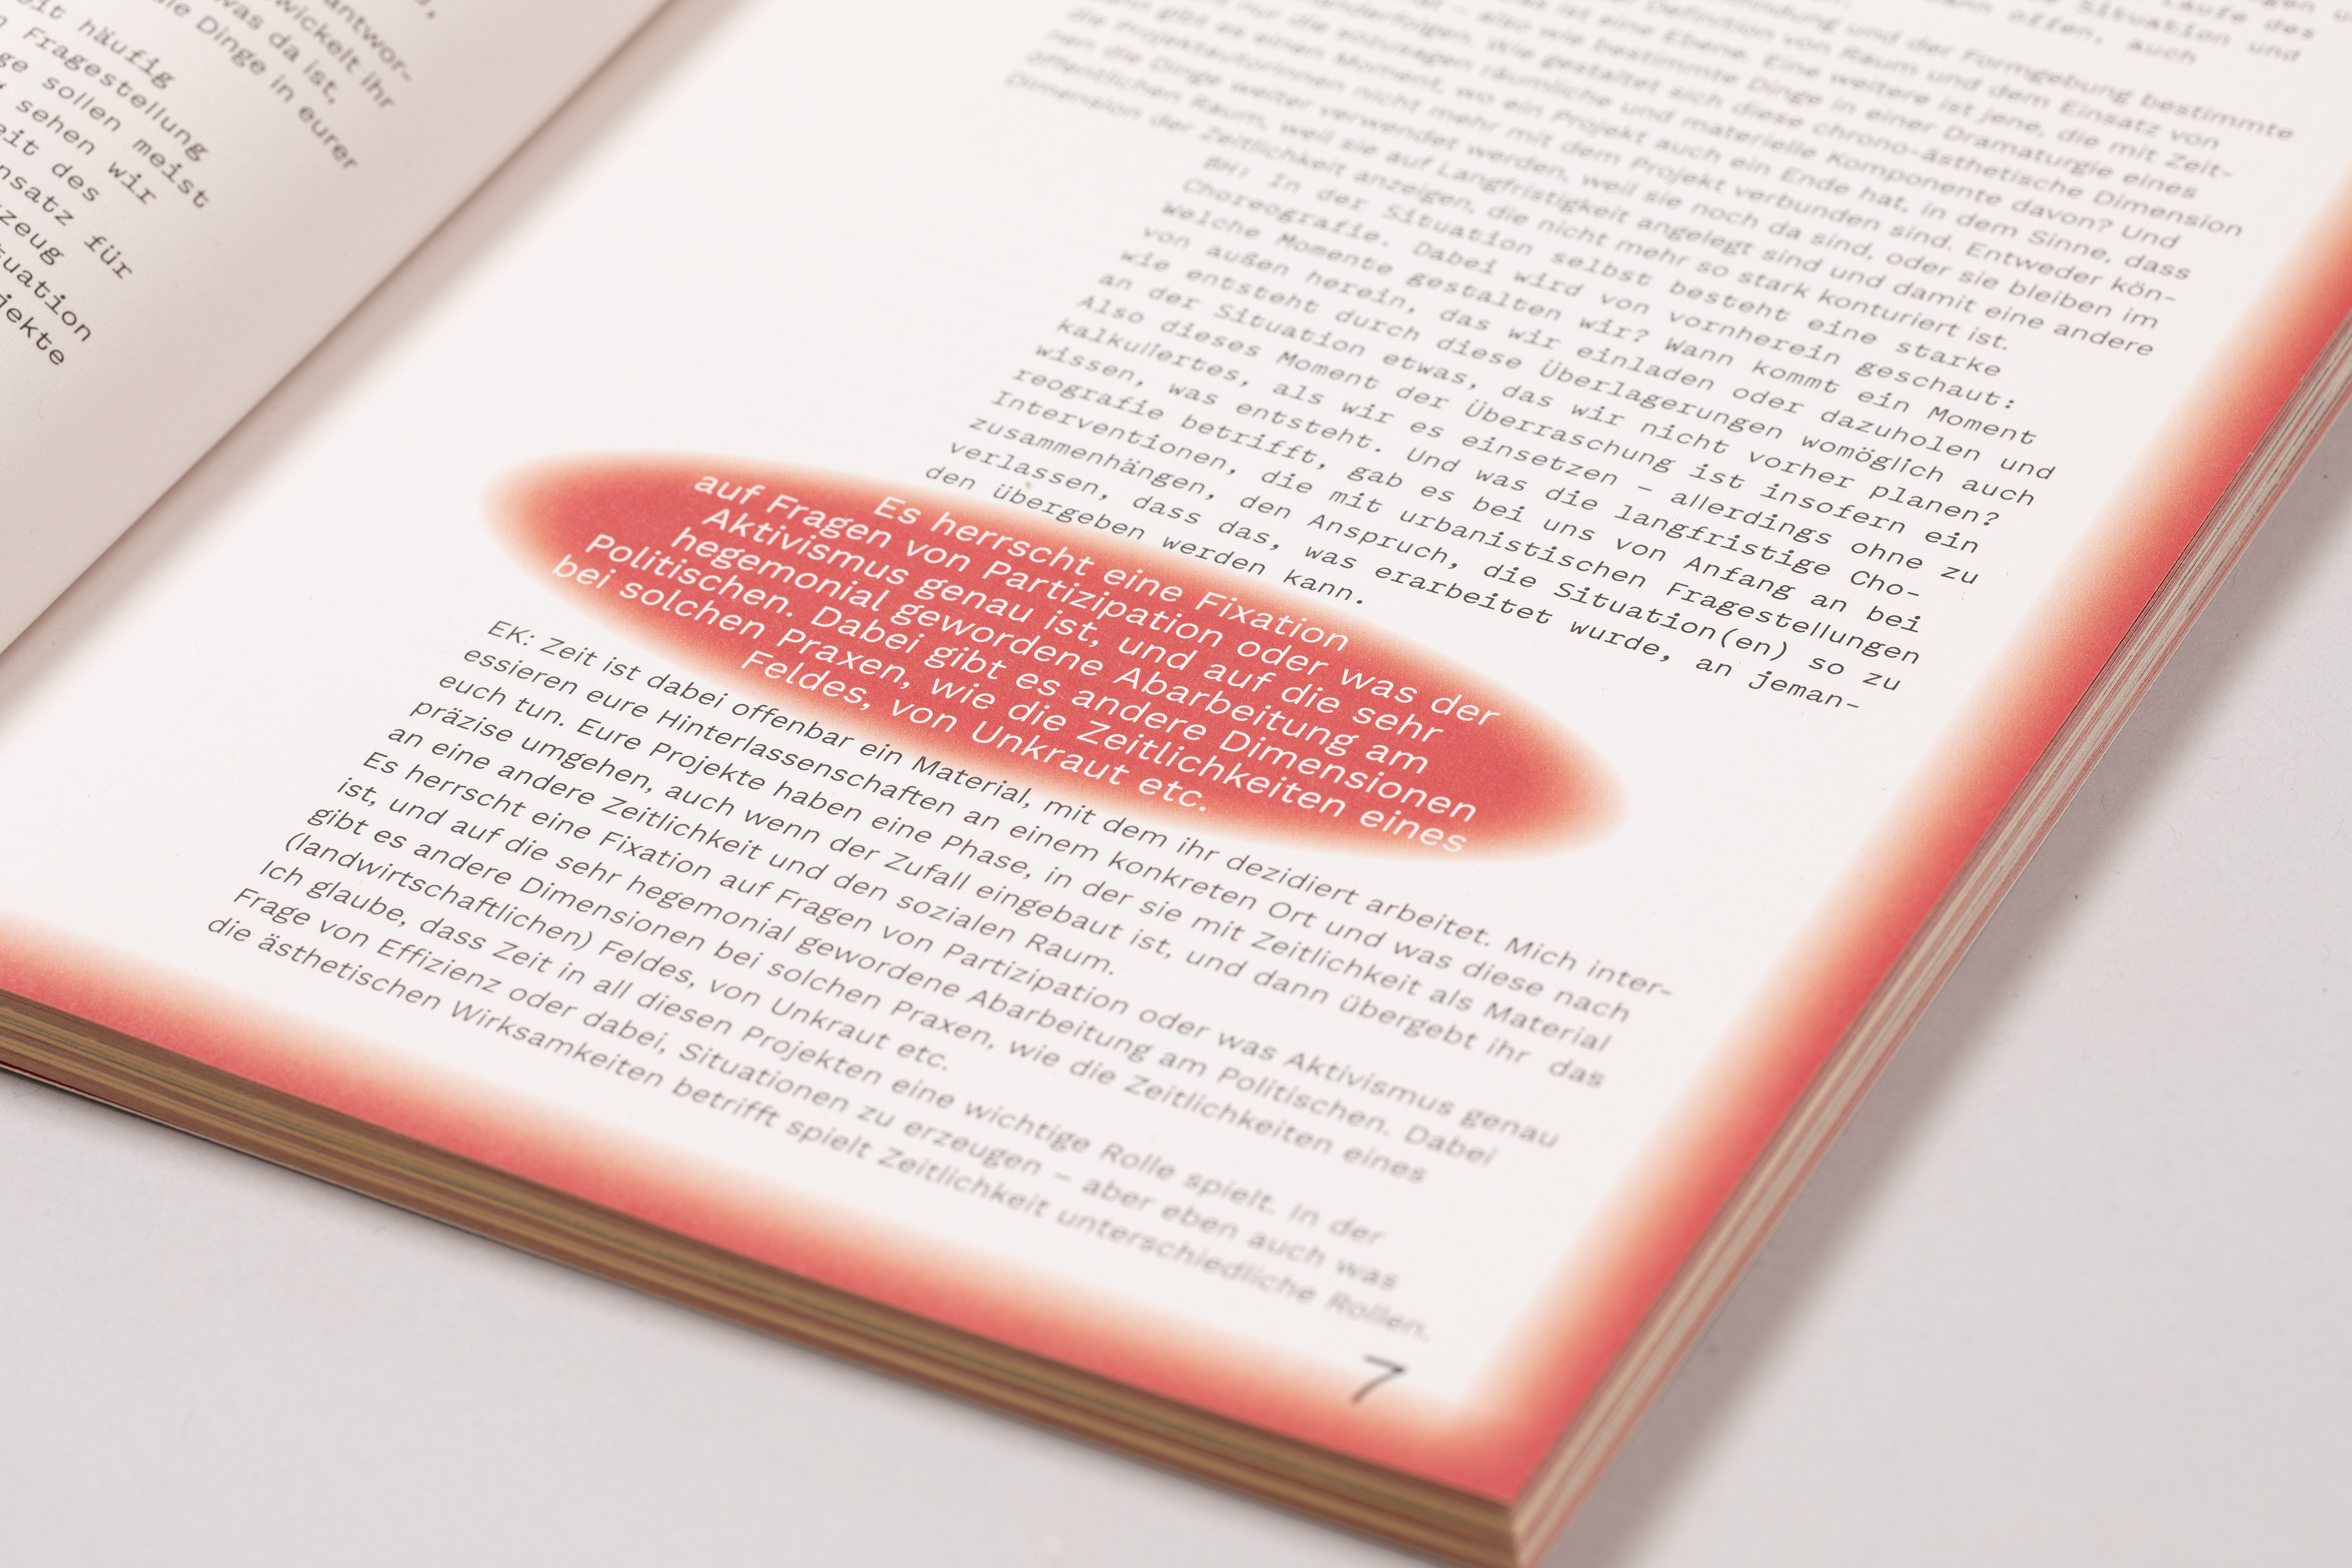 antwor-
wickelt ihr
was da ist,
Dinge in eurer
häufig
Fragestellung
sollen meist
sehen wir
des
für
Definition von Raum und dem Einsatz von
Ebene. Eine weitere ist jene, die mit Zeit-
bestimmte Dinge in einer Dramaturgie eines
Wie gestaltet sich diese chrono-ästhetische Dimension
nur die sozusagen räumliche und materielle Komponente davon? Und
gibt es einen Moment, wo ein Projekt auch ein Ende hat, in dem Sinne, dass
die ProjektautorInnen nicht mehr mit dem Projekt verbunden sind. Entweder kön-
nen die Dinge weiter verwendet werden, weil sie noch da sind, oder sie bleiben im
öffentlichen Raum, weil sie auf Langfristigkeit angelegt sind und damit eine andere
Dimension der Zeitlichkeit anzeigen, die nicht mehr so stark konturiert ist.
In der Situation selbst besteht eine starke
Choreografie. Dabei wird von vornherein geschaut:
Welche Momente gestalten wir? Wann kommt ein Moment
von außen herein, das wir einladen oder dazuholen und
wie entsteht durch diese Überlagerungen womöglich auch
an der Situation etwas, das wir nicht vorher planen?
Also dieses Moment der Überraschung ist insofern ein
kalkuliertes, als wir es einsetzen – allerdings ohne zu
wissen, was entsteht. Und was die langfristige Cho-
reografie betrifft, gab es bei uns von Anfang an bei
Interventionen, die mit urbanistischen Fragestellungen
zusammenhängen, den Anspruch, die Situation(en) so zu
verlassen, dass das, was erarbeitet wurde, an jeman-
den übergeben werden kann.
Es herrscht eine Fixation
auf Fragen von Partizipation oder was der
Aktivismus genau ist, und auf die sehr
hegemonial gewordene Abarbeitung am
Politischen. Dabei gibt es andere Dimensionen
bei solchen Praxen, wie die Zeitlichkeiten eines
Feldes, von Unkraut etc.
EK: Zeit ist dabei offenbar ein Material, mit dem ihr dezidiert arbeitet. Mich inter-
essieren eure Hinterlassenschaften an einem konkreten Ort und was diese nach
euch tun. Eure Projekte haben eine Phase, in der sie mit Zeitlichkeit als Material
präzise umgehen, auch wenn der Zufall eingebaut ist, und dann übergebt ihr das
an eine andere Zeitlichkeit und den sozialen Raum.
Es herrscht eine Fixation auf Fragen von Partizipation oder was Aktivismus genau
ist, und auf die sehr hegemonial gewordene Abarbeitung am Politischen. Dabei
gibt es andere Dimensionen bei solchen Praxen, wie die Zeitlichkeiten eines
(landwirtschaftlichen) Feldes, von Unkraut etc.
Ich glaube, dass Zeit in all diesen Projekten eine wichtige Rolle spielt. In der
Frage von Effizienz oder dabei, Situationen zu erzeugen – aber eben auch was
die ästhetischen Wirksamkeiten betrifft spielt Zeitlichkeit unterschiedliche Rollen.
7